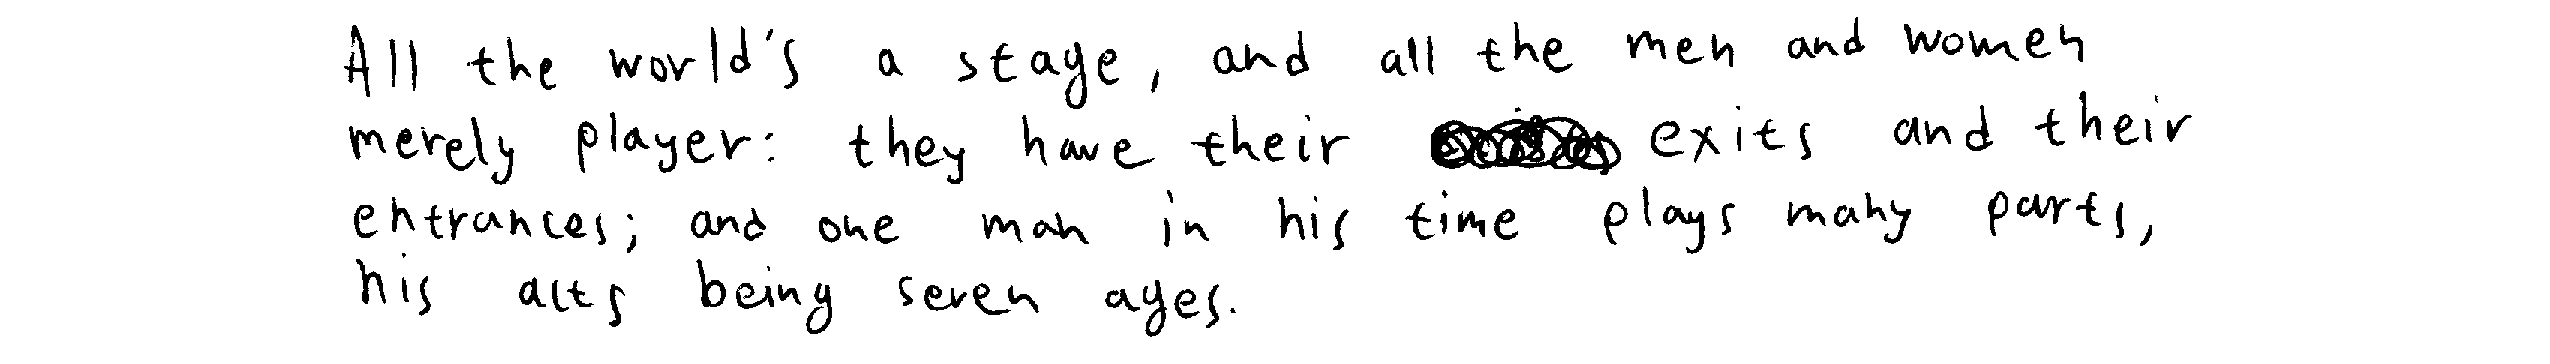 All the world's a stage, and all the men and women
merely player: they have their exits and their
entrances; and one man in his time plays many parts,
his acts being seven ages.